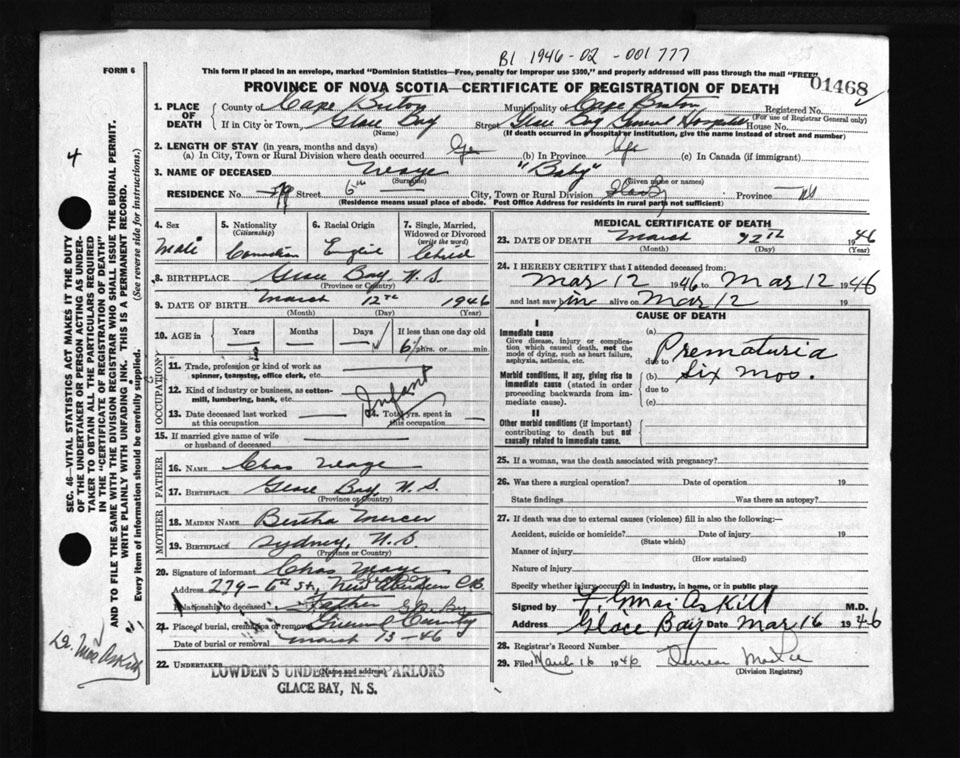 B1 1946-02-001777
FORM 6
This form if placed in an envelope, marked "Dominion Statistics—Free, penalty for improper use $300," and properly addressed will pass through the mail "FREE"
01468
PROVINCE OF NOVA SCOTIA—CERTIFICATE OF REGISTRATION OF DEATH
1. PLACE OF DEATH County of Cape Breton Municipality of Cape Breton Registered No.
(For use of Registrar General only)
If in City or Town, Glace Bay Street Glace Bay General Hospital House No.
(Name) (If death occurred in hospital or institution, give the name instead of street and number)
2. LENGTH OF STAY (in years, months and days)
(a) In City, Town or Rural Division where death occurred (b) In Province Life (c) In Canada (if immigrant)
3. NAME OF DECEASED "Baby"
(Surname) (Given name or names)
RESIDENCE No. Street 6th City, Town or Rural Division Glace Bay Province NS
(Residence means usual place of abode. Post Office Address for residents in rural parts not sufficient)
4. Sex 5. Nationality (Citizenship) 6. Racial Origin 7. Single, Married, Widowed or Divorced (write the word)
Male Canadian English Child
8. BIRTHPLACE Glace Bay, N.S.
(Province or Country)
9. DATE OF BIRTH March 12th 1946
(Month) (Day) (Year)
10. AGE in Years Months Days If less than one day old
hrs. or min.
OCCUPATION
11. Trade, profession or kind of work as spinner, teamster, office clerk, etc.
12. Kind of industry or business, as cotton-mill, lumbering, bank, etc.
Infant
13. Date deceased last worked at this occupation 14. Total yrs. spent in this occupation
15. If married give name of wife or husband of deceased
FATHER
16. NAME Chas
17. BIRTHPLACE Glace Bay, N.S.
(Province or Country)
MOTHER
18. MAIDEN NAME Bertha Mercer
19. BIRTHPLACE Sydney, N.S.
(Province or Country)
20. Signature of informant Chas
Address 279-6th St, New Aberdeen C.B.
Relationship to deceased Father
21. Place of burial, cremation or removal
Date of burial or removal March 13-46
22. UNDERTAKER
(Name and address)
LOWDEN'S UNDERTAKING PARLORS
GLACE BAY, N. S.
MEDICAL CERTIFICATE OF DEATH
23. DATE OF DEATH March 12th 1946
(Month) (Day) (Year)
24. I HEREBY CERTIFY that I attended deceased from:
Mar 12 1946 to Mar 12 1946
and last saw him alive on Mar 12 19
CAUSE OF DEATH
I
Immediate cause
Give disease, injury or complication which caused death, not the mode of dying, such as heart failure, asphyxia, asthenia, etc.
(a) Prematuria
due to
Morbid conditions, if any, giving rise to immediate cause (stated in order proceeding backwards from immediate cause).
(b) Six Mos.
due to
(c)
II
Other morbid conditions (if important) contributing to death but not causally related to immediate cause.
25. If a woman, was the death associated with pregnancy?
26. Was there a surgical operation? Date of operation 19
State findings Was there an autopsy?
27. If death was due to external causes (violence) fill in also the following:—
Accident, suicide or homicide? Date of injury 19
(State which)
Manner of injury
(How sustained)
Nature of injury
Specify whether injury occurred in industry, in home, or in public place
Signed by M.D.
Address Glace Bay Date Mar 16 1946
28. Registrar's Record Number
29. Filed March 16 1946 Duncan
(Division Registrar)
4
SEC. 46—VITAL STATISTICS ACT MAKES IT THE DUTY
OF THE UNDERTAKER OR PERSON ACTING AS UNDER-
TAKER TO OBTAIN ALL THE PARTICULARS REQUIRED
IN THE "CERTIFICATE OF REGISTRATION OF DEATH"
AND TO FILE THE SAME WITH THE DIVISION REGISTRAR WHO SHALL ISSUE THE BURIAL PERMIT.
WRITE PLAINLY WITH UNFADING INK. THIS IS A PERMANENT RECORD.
Every item of information should be carefully supplied. (See reverse side for instructions.)